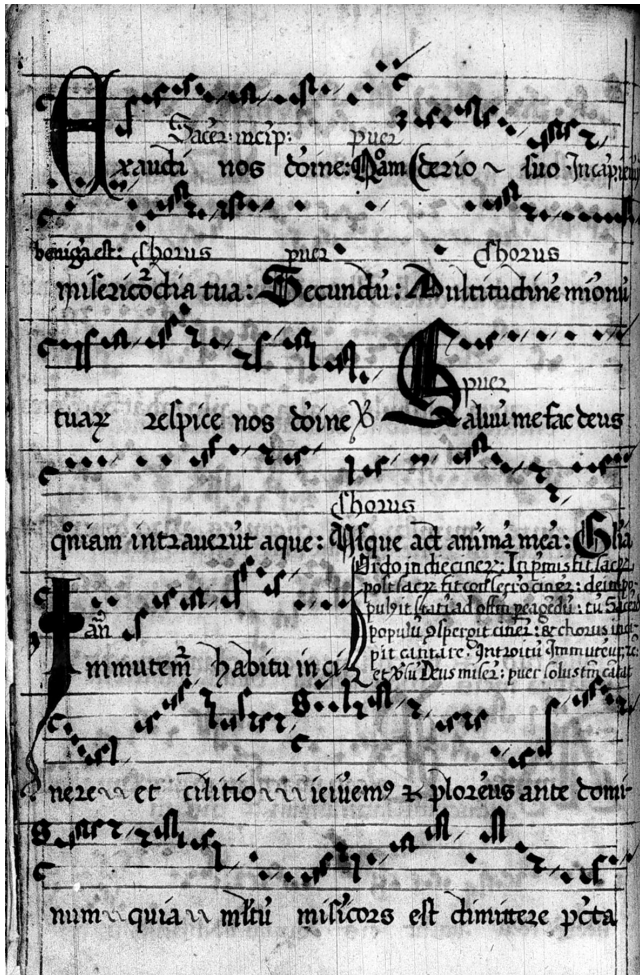 Sacer: incip: puer
Exaudi nos dōine: Qm̄ suo Incapiēm
benigā est: Chorus puer Chorus
misericordia tua: Secundū: Multitudinē mīonū
tuaꝝ respice nos dōine
puer
Saluū me fac deus
qm̄iam intraverūt aque: Chorus Usque ad animā meā: Glīa
Ordo in die ciner: In pīmis fit sacꝝ
post sacꝝ fit consecrō ciner:
populū ꝯspergit ciner: & chorus inci-
pit cantare: Introitū Immutemur:
et v̄sū Deus miser: puer solus tm̄ cātat
an̄
Immutemr̄ habitu in ci
nere et cilitio ieiūemꝰ & plorēus ante domi-
num quia ml̄tū misīcors est dimittere pc̄ta